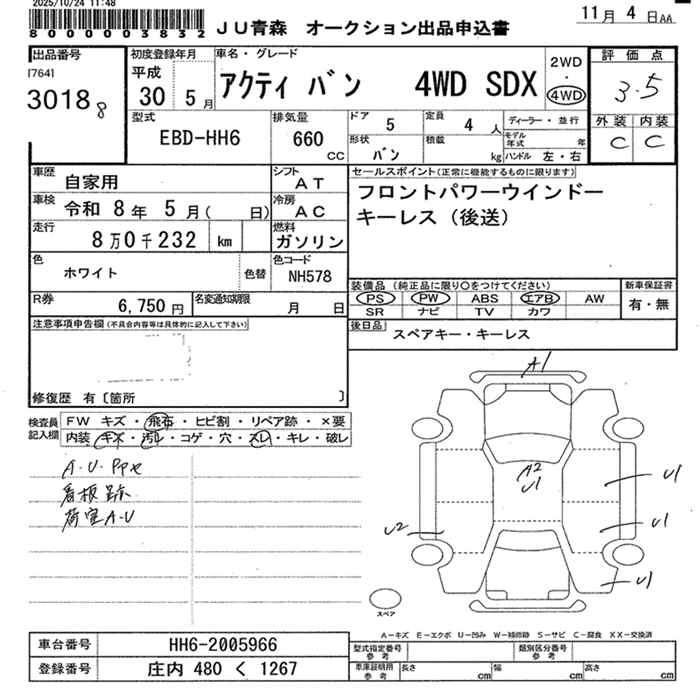 2025/10/24 11:48
80000003832
JU青森 オークション出品申込書
11月 4日AA
出品番号
[764]
3018 8
初度登録年月
平成
30 5月
車名・グレード
アクティ バン 4WD SDX
2WD
・
4WD
評価点
3.5
外装 内装
C C
型式
EBD-HH6
排気量
660
CC
ドア
5
定員
4 人
形状
バン
積載
kg
ディーラー・並行
モデル年式 年
ハンドル 左・右
車歴
自家用
シフト
AT
車検
令和 8年 5月( 日)
冷房
AC
走行
8万0千232 km
燃料
ガソリン
色
ホワイト
色替
色コード
NH578
R券
6,750円
名変通知期限
月 日
セールスポイント(正常に機能するものに限ります)
フロントパワーウインドー
キーレス(後送)
装備品(純正品に限り○をつけてください)
PS PW ABS エアB AW
SR ナビ TV カワ
新車保証書
有・無
後日品
スペアキー・キーレス
注意事項申告欄(不具合内容等は具体的に記入して下さい)
修復歴 有〔箇所 〕
検査員
記入欄
FW キズ・飛石・ヒビ割・リペア跡・×要
内装・キズ・汚レ・コゲ・穴・スレ・キレ・破レ
A・U・PPe
看板跡
荷室A-U
A1
A2
U1
U1
U2
U1
U1
スペア
A-キズ E-エクボ U-凹み W-補修跡 S-サビ C-腐食 XX-交換済
車台番号
HH6-2005966
登録番号
庄内 480 く 1267
型式指定番号
参考
類別区分番号
参考
車庫証明用
参考
長さ cm
幅 cm
高さ cm